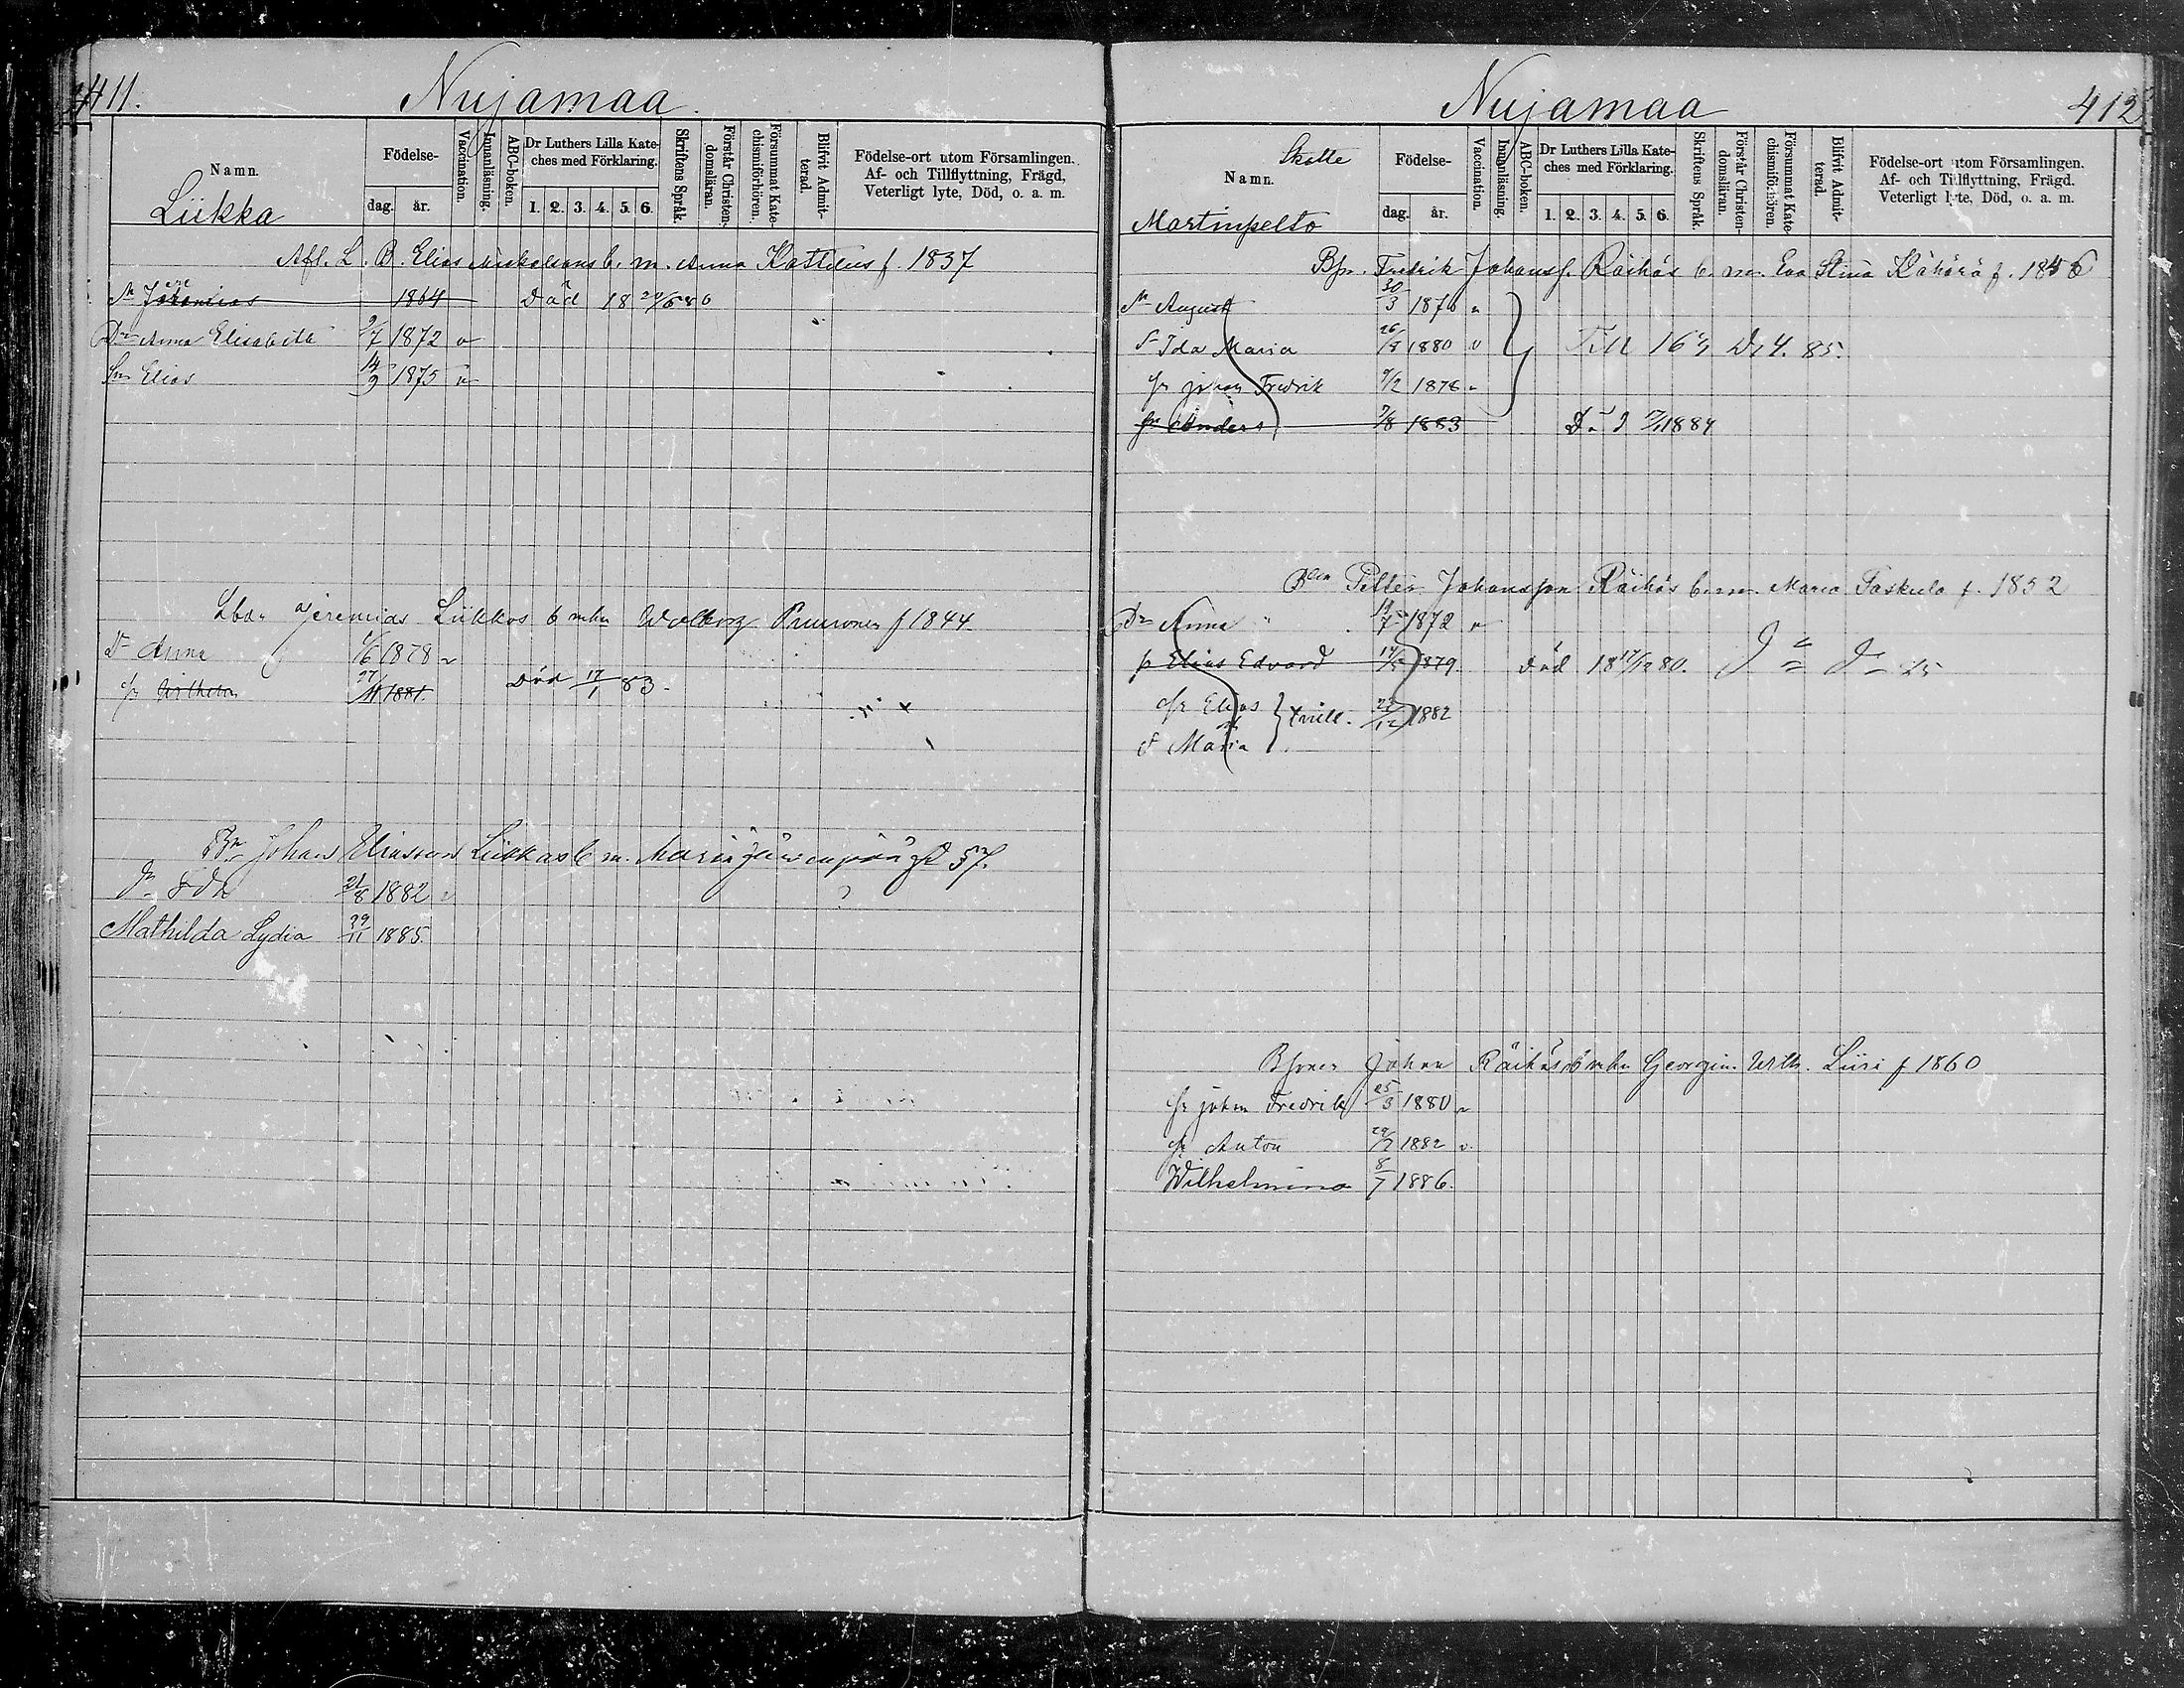 411.
Nujamaa.
Namn.
Liikka
Födelse-
dag. år.
Vaccination.
Innanläsning.
ABC-boken.
Dr Luthers Lilla Kate-
ches med Förklaring.
1. 2. 3. 4. 5. 6.
Skriftens Språk.
Förstår Christen-
domsläran.
Försummat Kate-
chismiförhören.
Blifvit Admit-
terad.
Födelse-ort utom Församlingen.
Af- och Tillflyttning, Frägd,
Veterligt lyte, Död, o. a. m.
Afl. L. B. Elias b. m. Anna f. 1837
1864 Död 18 80
Dr Anna Elisabeth 9/7 1872 v
Sn Elias 14/9 1875 v
Lbdn Jeremias Liikkas b mhu Walborg Punnonen f 1844
Dr Anna 1/6 1878 v
Sn Wilhelm 27/11 1881. Död 17/1 83.
Bn Johan Eliasson Liikkas b m. Maria 57.
Dr Ida 21/8 1882 v
Mathilda Lydia 29/11 1885.
Nujamaa
412
Skatte
Namn.
Martinpelto
Födelse-
dag. år.
Vaccination.
Innanläsning.
ABC-boken.
Dr Luthers Lilla Kate-
ches med Förklaring.
1. 2. 3. 4. 5. 6.
Skriftens Språk.
Förstår Christen-
domsläran.
Försummat Kate-
chismiförhören.
Blifvit Admit-
terad.
Födelse-ort utom Församlingen.
Af- och Tillflyttning, Frägd.
Veterligt lyte, Död, o. a. m.
Bpn. Fredrik Johanss. Räihäs b. m. Eva Stina Kähärä f. 1856
Sn August 30/3 1876 v
Ida Maria 26/8 1880 v Till 85.
Sn Johan Fredrik 9/2 1878 v
Sn Anders 7/8 1883 1884
Petter Johansson Räihäs b. m. Maria Paskula f. 1852
Dr Anna 1872 v
Sn Elias Edvard 1879. Död 18 17/12 80.
Sn Elias } tvill. 23/12 1882
d Maria
Johan Räihäs b mhu Georgina Wilh. Liiri f 1860
Sn Johan Fredrik 25/3 1880 v
Sn Anton 1882 v.
Wilhelmina 8/7 1886.